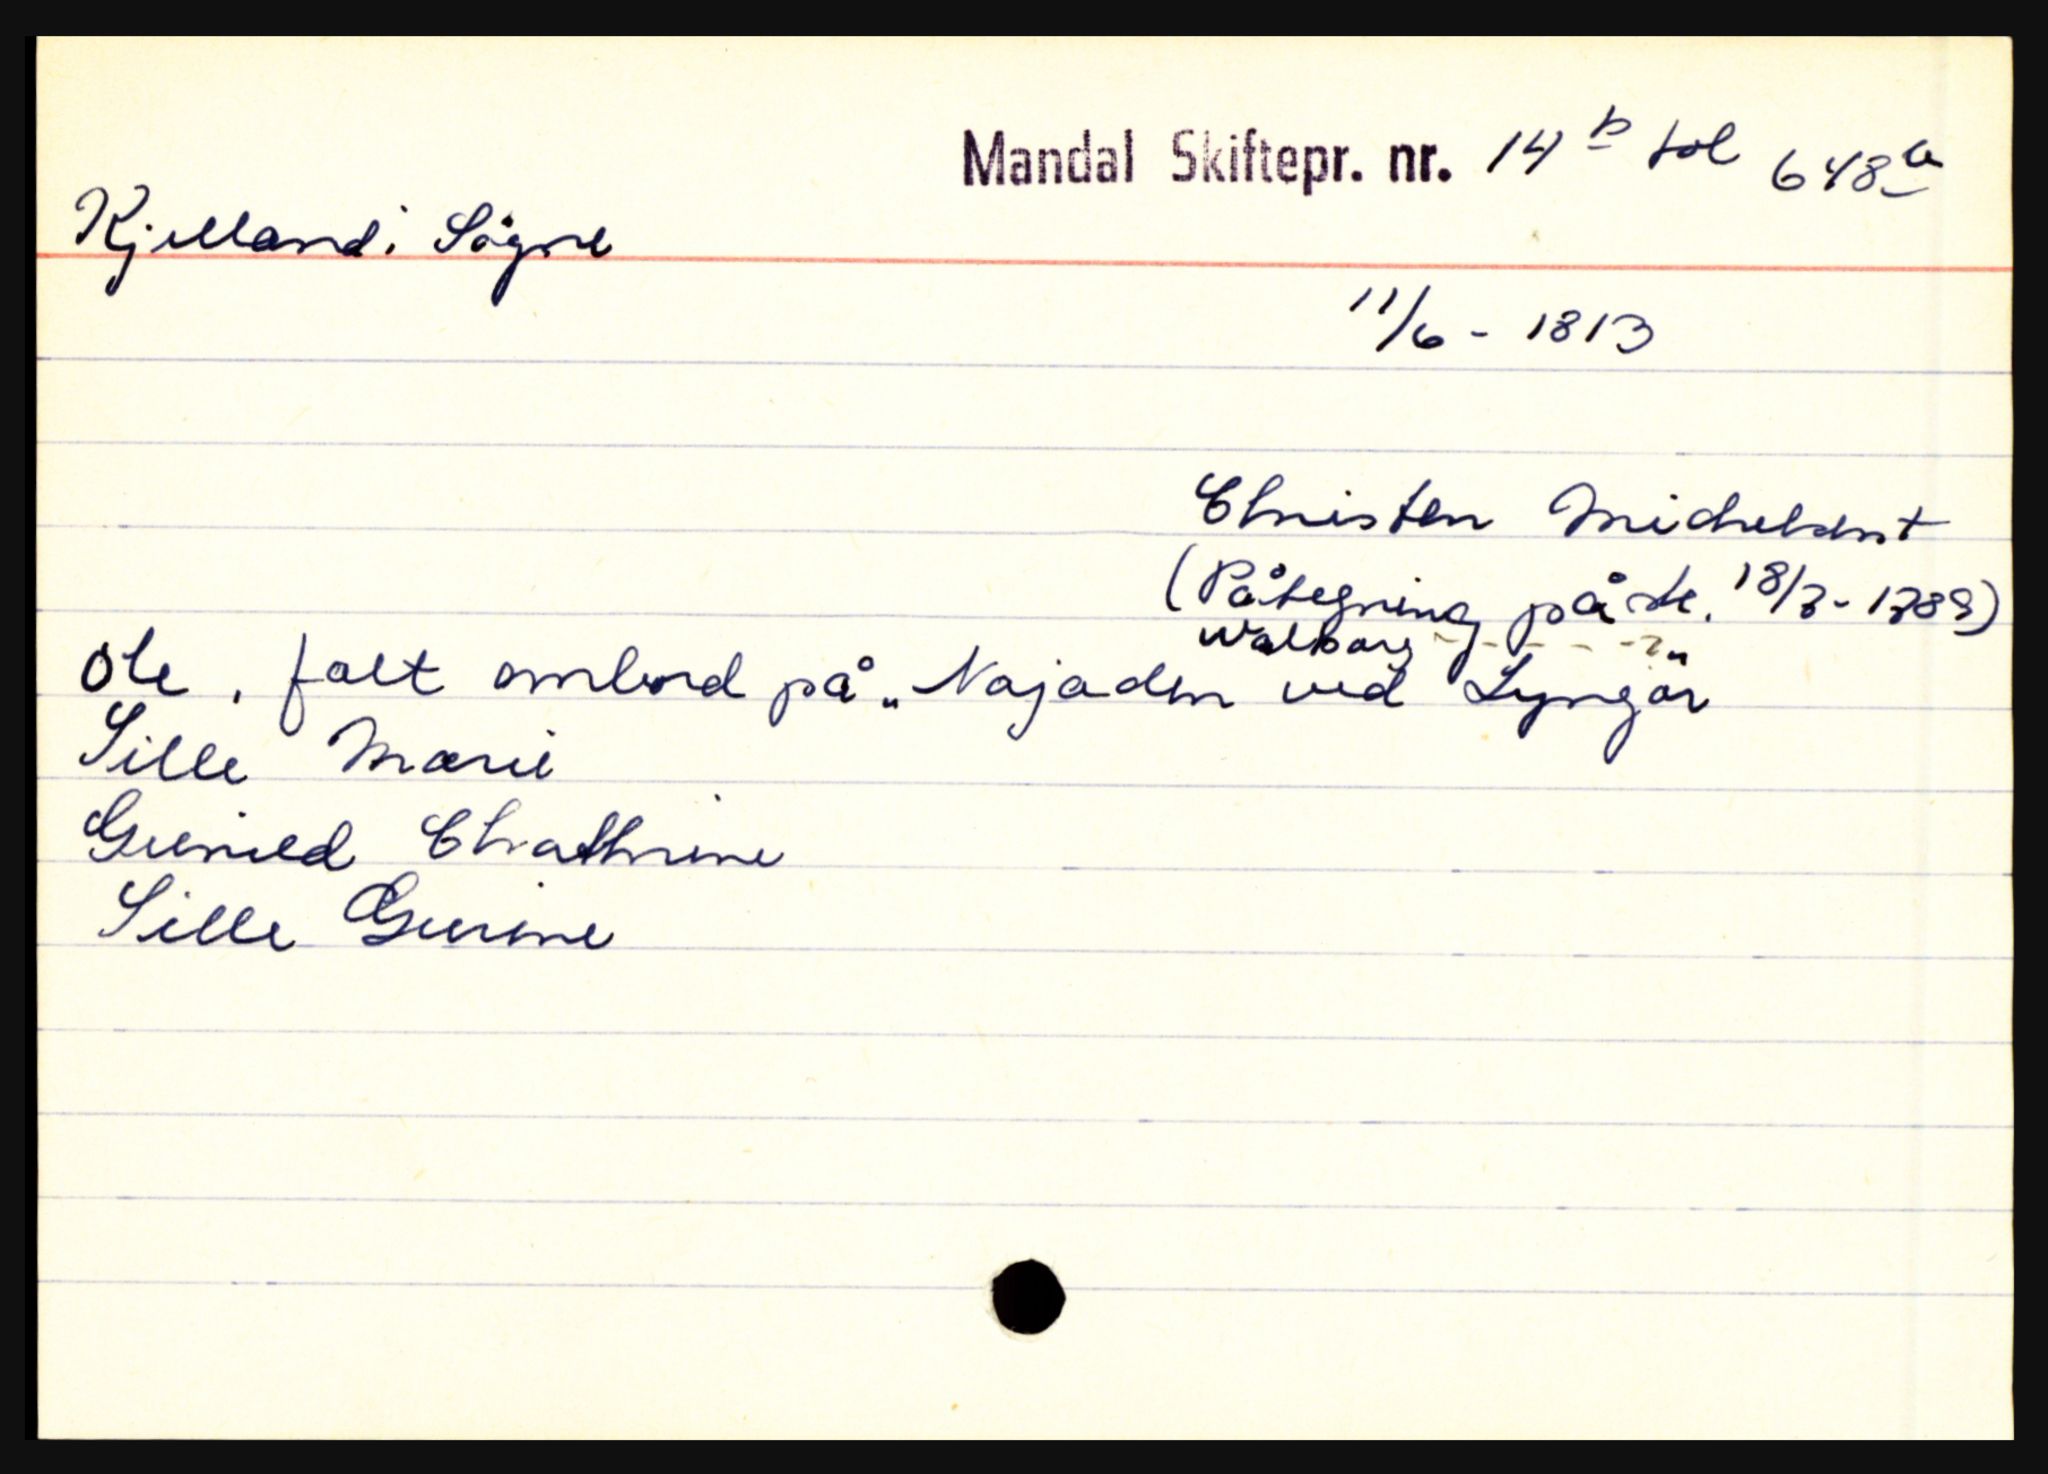 Mandal Skiftepr. nr. 14 b fol 648 a
Kjelland i Sögne
11/6 - 1813
Christen Michelsen †
(Påtegning på sk. 18/7 - 1789)
Walborg - - - - - ? "
Ole , falt ombord på „Najaden ved Lyngør
Sille Marie
Gunild Chathrine
Sille Gurine